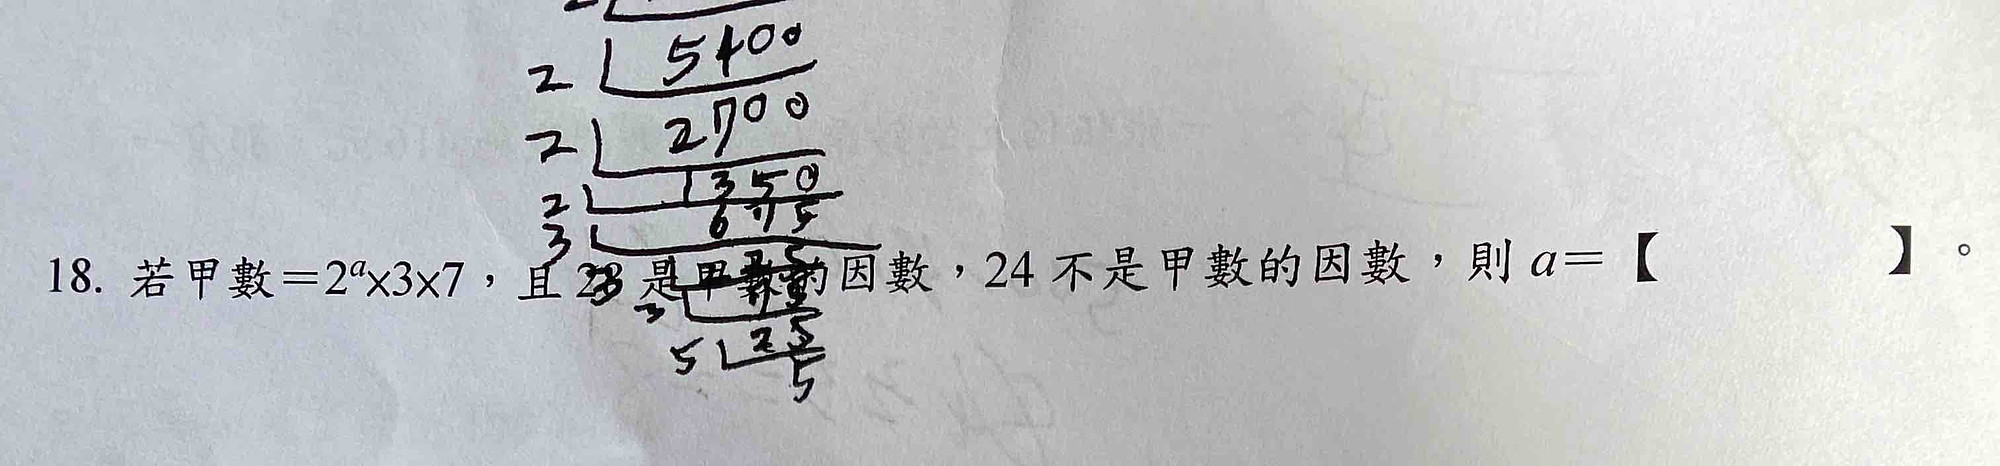 2 5400
2 2700
2 1350
3 675
18. 若甲數=2ᵃ×3×7，且 是甲數的因數，24 不是甲數的因數，則 a=【 】。
3
5 25
5